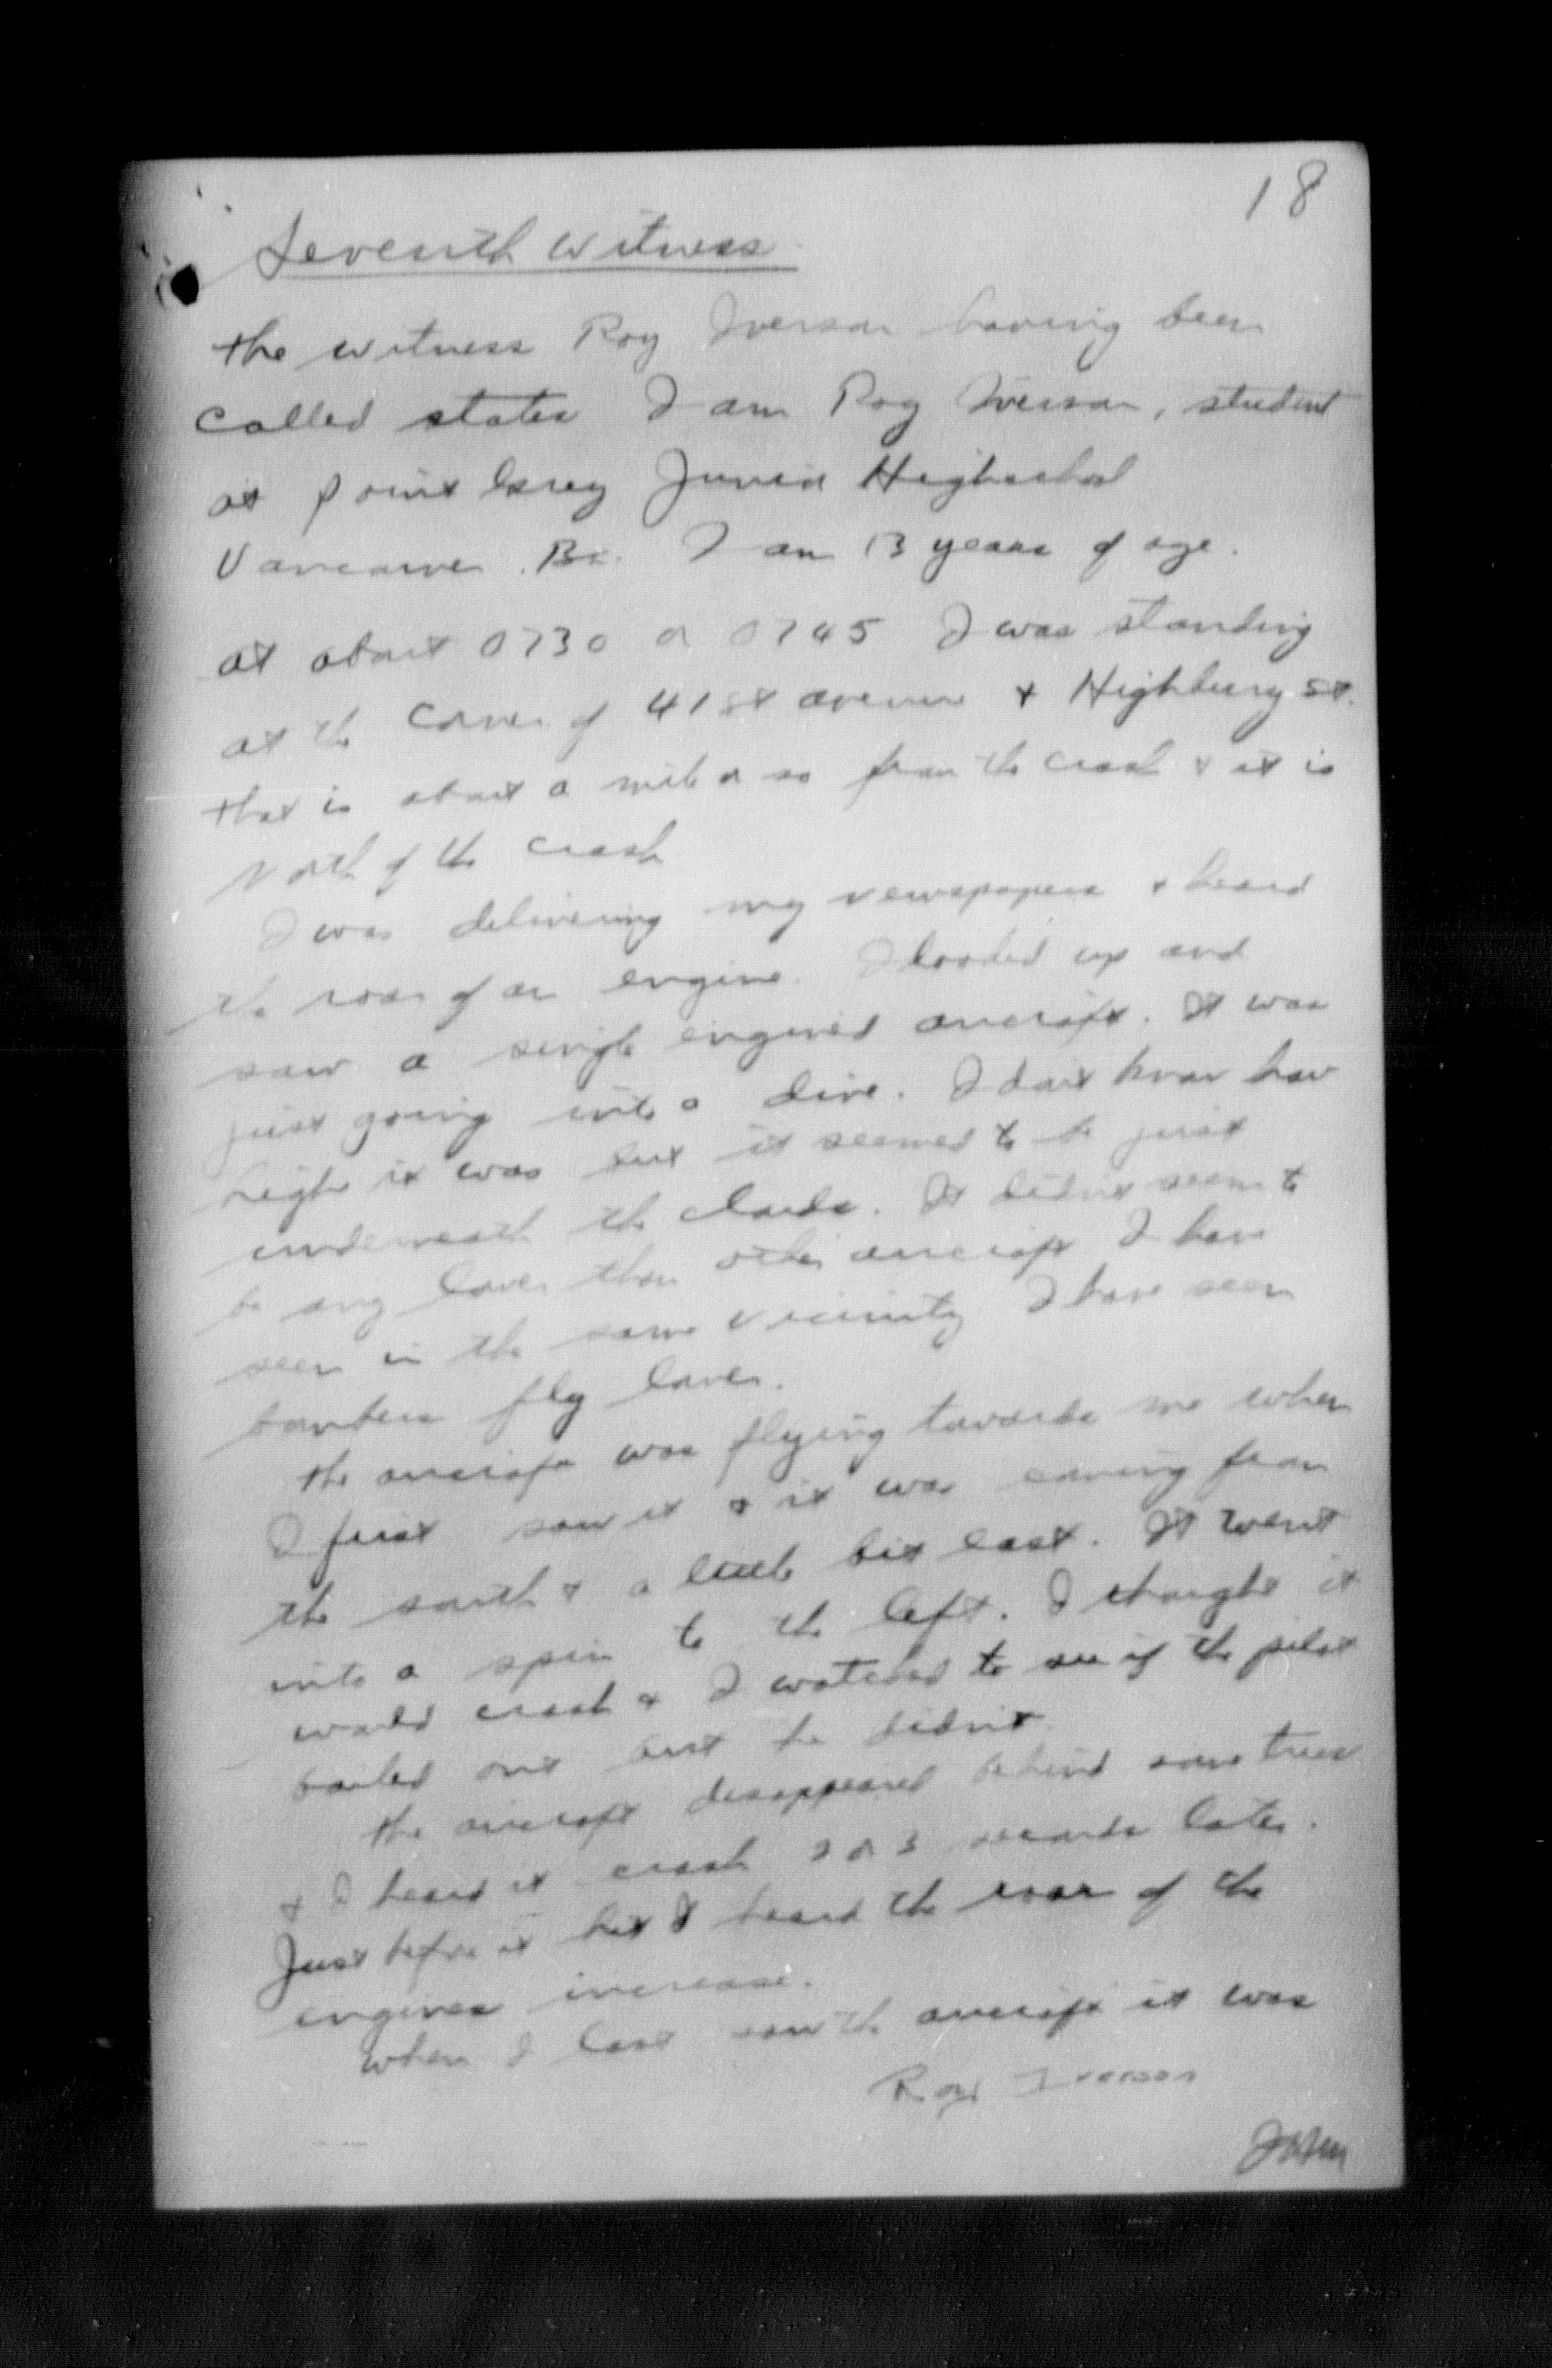 18
Seventh Witness
the witness Roy Iverson having been
called states I am Roy Iverson, student
at point Grey Junior Highschool
Vancouver. B.C. I am 13 years of age.
at about 0730 or 0745 I was standing
at the corner of 41st avenue & Highbury st.
that is about a mile or so from the crash & it is
North of the crash
I was delivering my newspapers & heard
the roar of an engine. I looked up and
saw a single engined aircraft. It was
just going into a dive. I don't know how
high it was but it seemed to be just
underneath the clouds. It didn't seem to
be any lower than other aircraft I have
seen in the same vicinity I have seen
bombers fly lower.
the aircraft was flying towards me when
I first saw it & it was coming from
the south & a little bit east. It went
into a spin to the left. I thought it
would crash & I watched to see if the pilot
bailed out but he didn't
the aircraft disappeared behind some trees
& I heard it crash 2 or 3 seconds later.
Just before it hit I heard the roar of the
engines increase.
When I last saw the aircraft it was
Roy Iverson